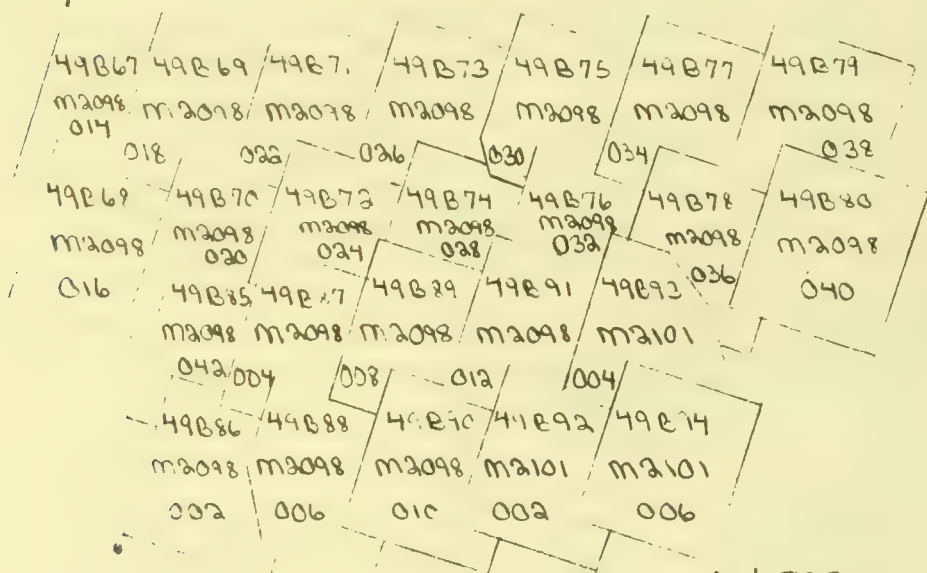 49B67 49B69 49B7. 49B73 49B75 49B77 49B79
M2098 M2098 M2098 M2098 M2098 M2098 M2098
014
018 022 026 030 034 038
49B68 49B70 49B72 49B74 49B76 49B78 49B80
M2098 M2098 M2098 M2098 M2098 M2098 M2098
016 020 024 028 032 036 040
49B85 49B87 49B89 49B91 49B93
M2098 M2098 M2098 M2098 M2101
042 004 008 012 004
49B86 49B88 49B90 49B92 49B94
M2098 M2098 M2098 M2101 M2101
002 006 010 002 006